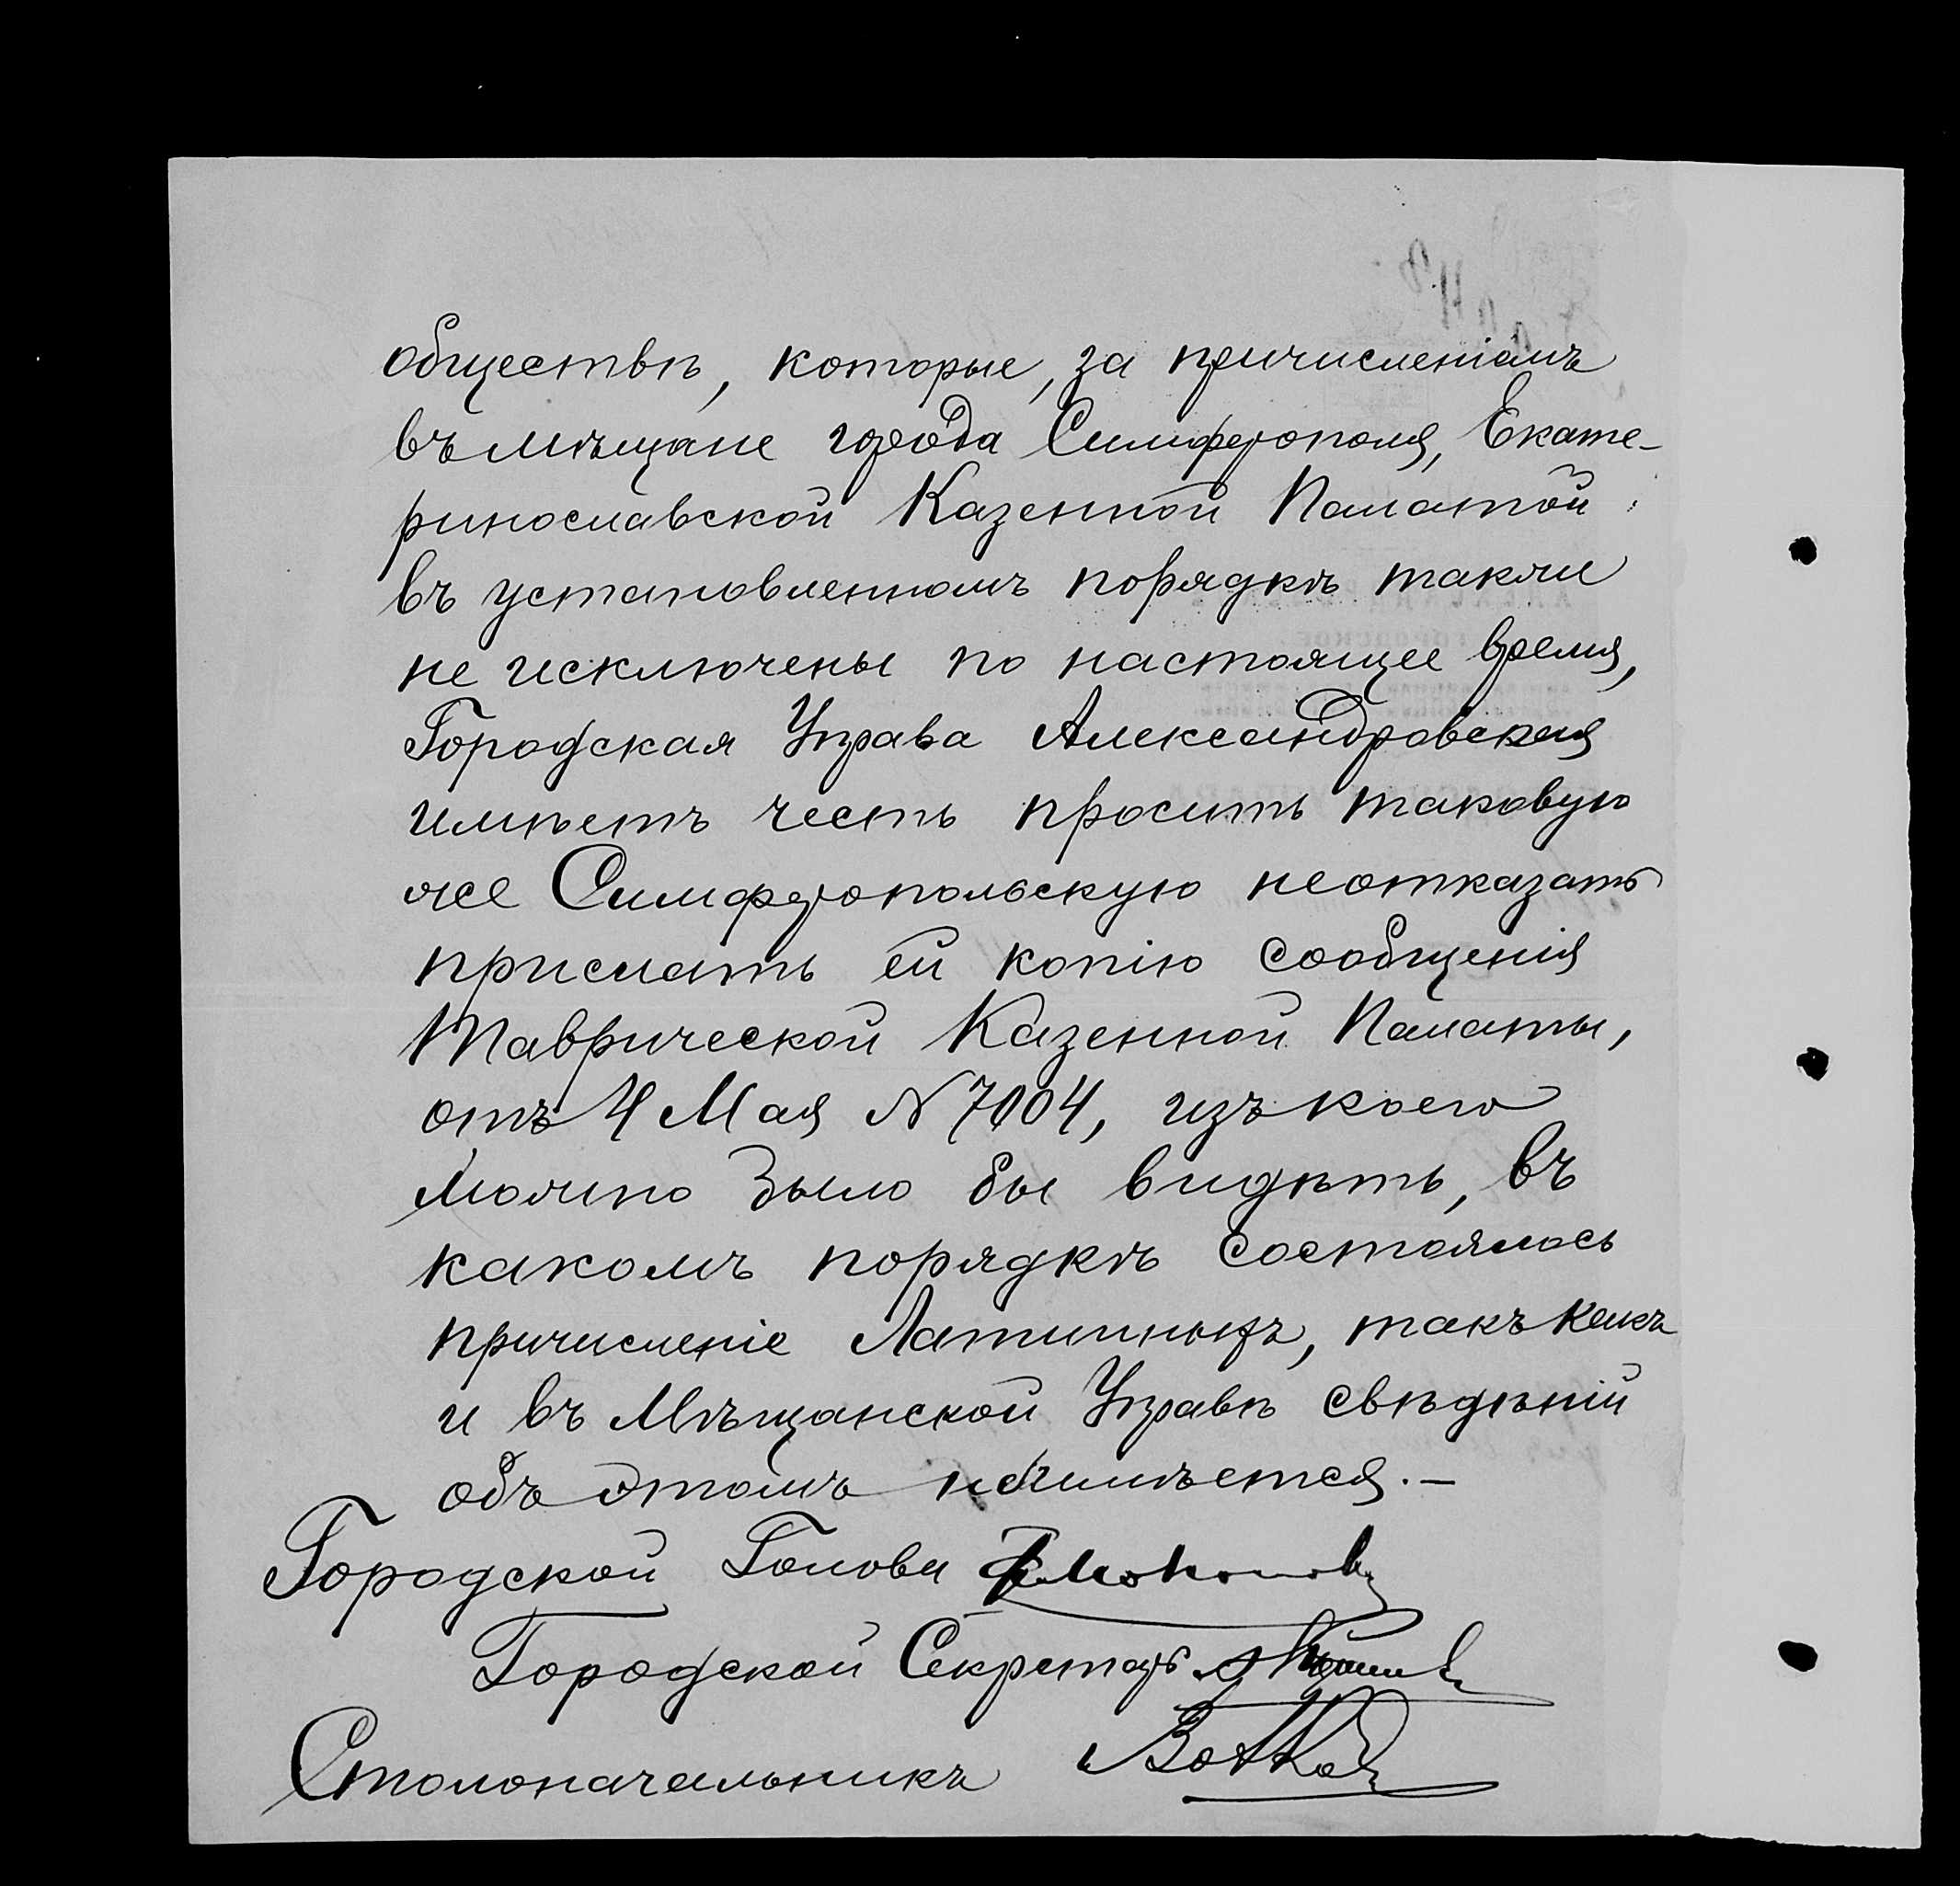 обществѣ, которые, за причисленіемъ
въ мѣщане города Симферополя, Екате-
ринославской Казенной Палатой
въ установленномъ порядкѣ также
не исключены по настоящее время,
Городская Управа Александровская
имѣетъ честь просить таковую
же Симферопольскую неотказать
прислать ей копію сообщенія
Таврической Казенной Палаты,
отъ 4 Мая N 7104, изъ коего
можно было бы видѣть, въ
какомъ порядкѣ состоялось
причисленіе Латинныхъ, такъ какъ
и въ Мѣщанской Управѣ свѣдѣній
объ этомъ неимѣется.-
Городской Голова
Городской Секретарь
Столоначальникъ